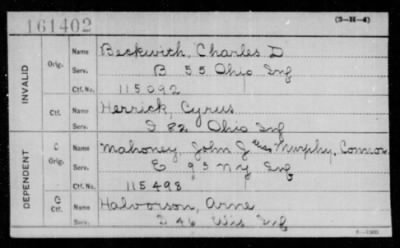 161402 (3-H-4)
INVALID
Orig. Name Beckwith, Charles D
Serv. B 55 Ohio Inf
Ctf. No. 115092
Ctf. Name Herrick, Cyrus
Serv. I 82 Ohio Inf
DEPENDENT
C Orig. Name Mahoney, John J alias Murphy, Connor
Serv. E 95 NY Inf
Ctf. No. 115498
C Ctf. Name Halvorson, Arne
Serv. I 46 Wis Inf